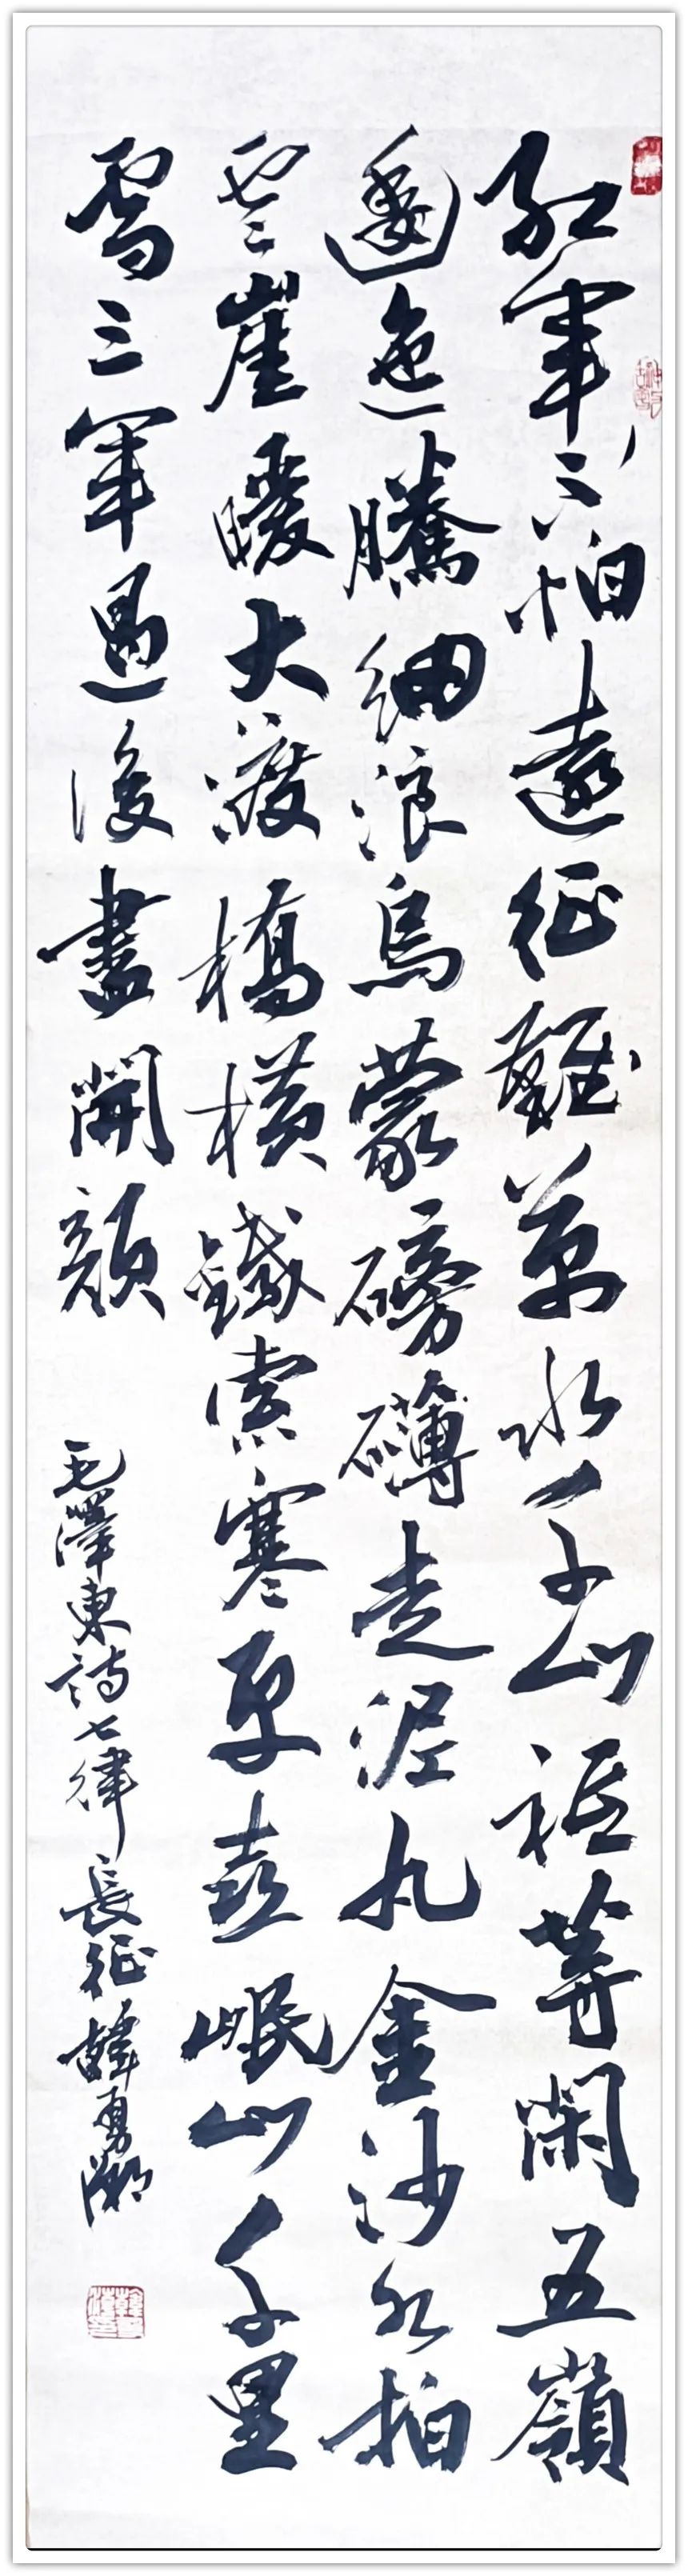 紅軍不怕遠征難萬水千山祇等閑五嶺
逶迤騰細浪烏蒙磅礴走泥丸金沙水拍
雲崖暖大渡橋橫鐵索寒更喜岷山千里
雪三軍過後盡開顏
毛澤東詩七律長征韓勇